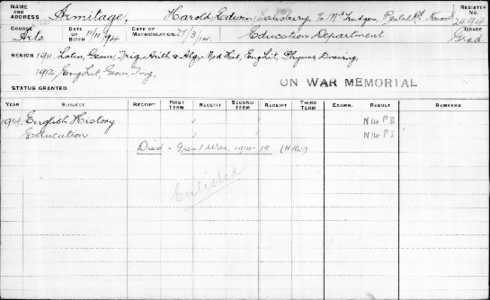 NAME AND ADDRESS Armitage, Harold Edwin REGISTER No. 2494
COURSE Arts DATE OF BIRTH 11/11/94 DATE OF MATRICULATION 27/3/14 Education Department GRADE Grad
SENIOR 1911 Latin, Geom, Trig, Arith & Alg, EngLit, Physics, Drawing,
1912, EngLit, Geom Trig,
STATUS GRANTED ON WAR MEMORIAL
YEAR SUBJECT RECEIPT FIRST TERM RECEIPT SECOND TERM RECEIPT THIRD TERM EXAMN. RESULT REMARKS
1914 English History " " N14 P II
Education " " N14 P I
Died - Great War, 1914-18
Enlisted